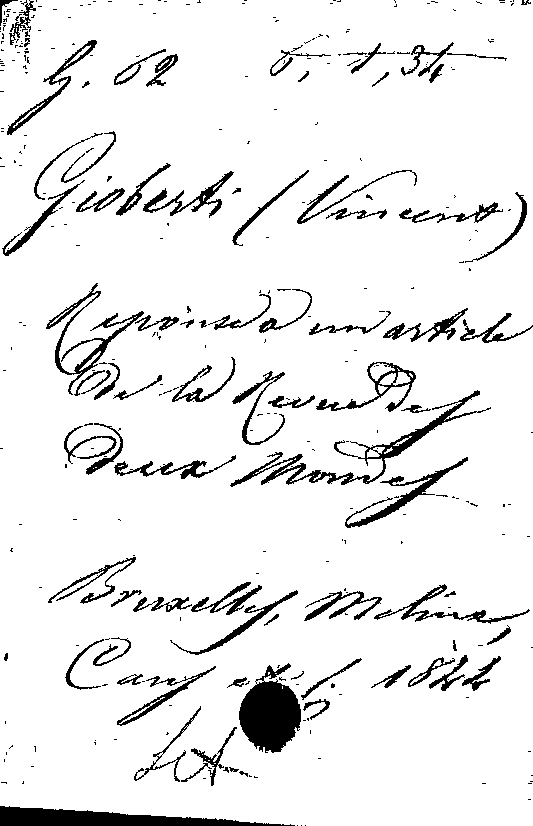 G. 62 6, 1, 34
Gioberti (Vincent)
Réponse à un article
de la Revue des
deux Mondes
Bruxelles, Meline,
Cans et 1844